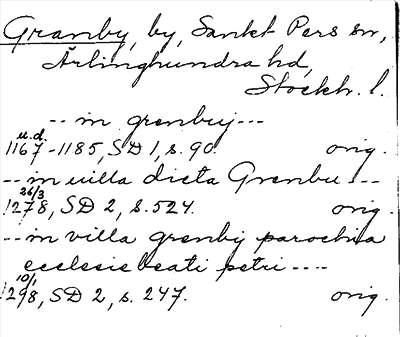 Granby, by, Sankt Pers sn,
Ärlinghundra hd,
Stockh. l.
-- in grenbuj ---
u.d.
1167-1185, SD 1, s. 90. orig.
-- in uilla dicta Grenbu ---
26/3
1278, SD 2, s. 524. orig.
-- in villa grenbij parochia
ecclesie beati petri ----
10/1
1298, SD 2, s. 247. orig.